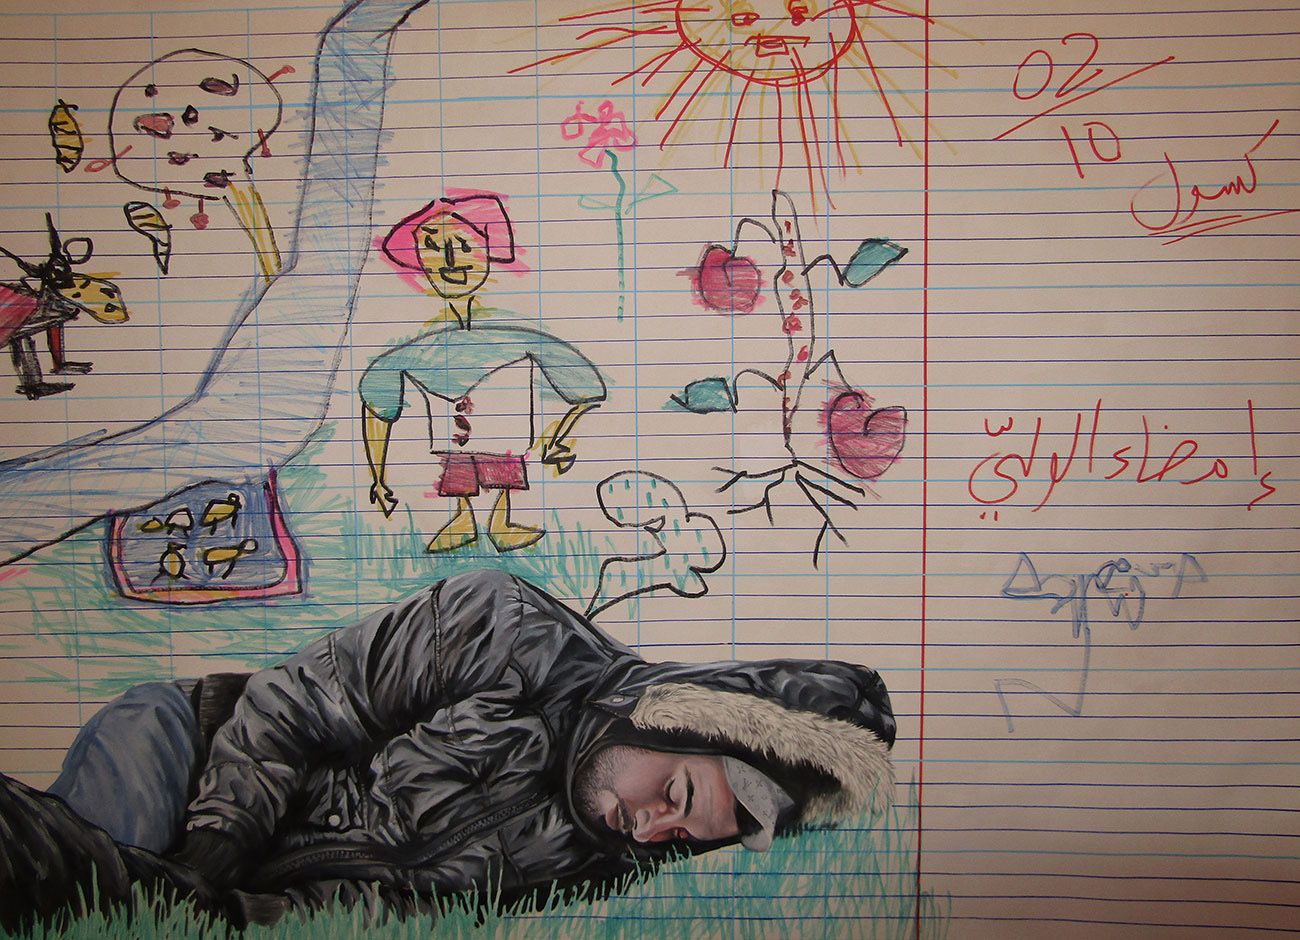 02
10
كسول
إمضاء الوليّ